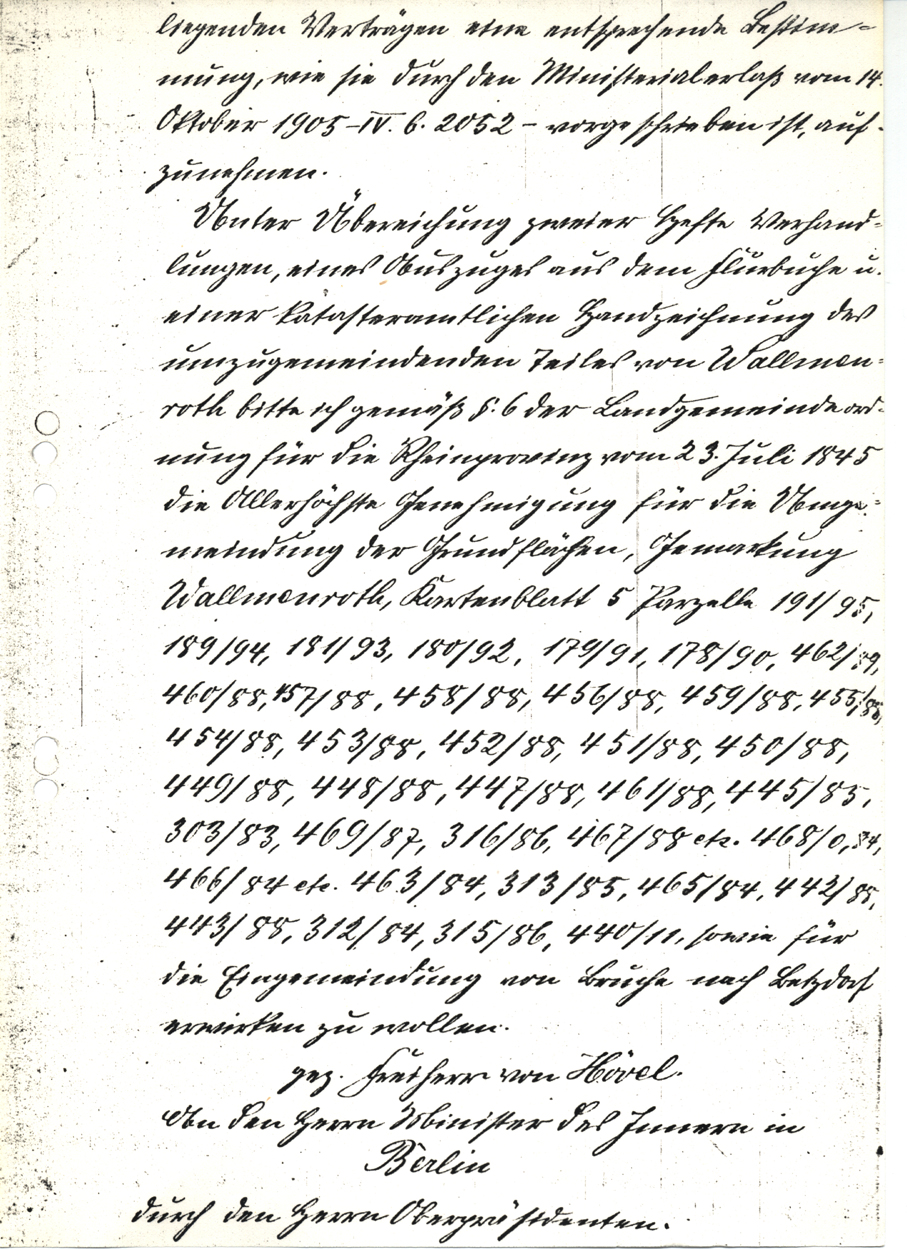 liegenden Verträgen eine entsprechende Bestim-
mung, wie sie durch den Ministerialerlaß vom 14.
Oktober 1905 – IV. b. 2052 – vorgeschrieben ist, auf-
zunehmen.
Unter Übereichung zweier Hefte Verhand-
lungen, eines Auszuges aus dem Flurbuche u.
einer katasteramtlichen Handzeichnung des
umzugemeindenden Teiles von Wallmen-
roth bitte ich gemäß §. 6 der Landgemeindeord-
nung für die Rheinprovinz vom 23. Juli 1845
die Allerhöchste Genehmigung für die Umge-
meindung der Grundflächen, Gemarkung
Wallmenroth, Kartenblatt 5 Parzelle 191/95,
189/94, 181/93, 180/92, 179/91, 178/90, 462/89,
460/88, 457/88, 458/88, 456/88, 459/88, 455/88,
454/88, 453/88, 452/88, 451/88, 450/88,
449/88, 448/88, 447/88, 461/88, 445/83,
303/83, 469/87, 316/86, 467/88 etc. 468/0,84,
466/84 etc. 463/84, 313/85, 465/84, 442/88,
443/88, 312/84, 315/86, 440/11, sowie für
die Eingemeindung von Bruche nach Betzdorf
erwirken zu wollen.
gez. Freiherr von Hövel.
An den Herrn Minister des Innern in
Berlin
durch den Herrn Oberpräsidenten.